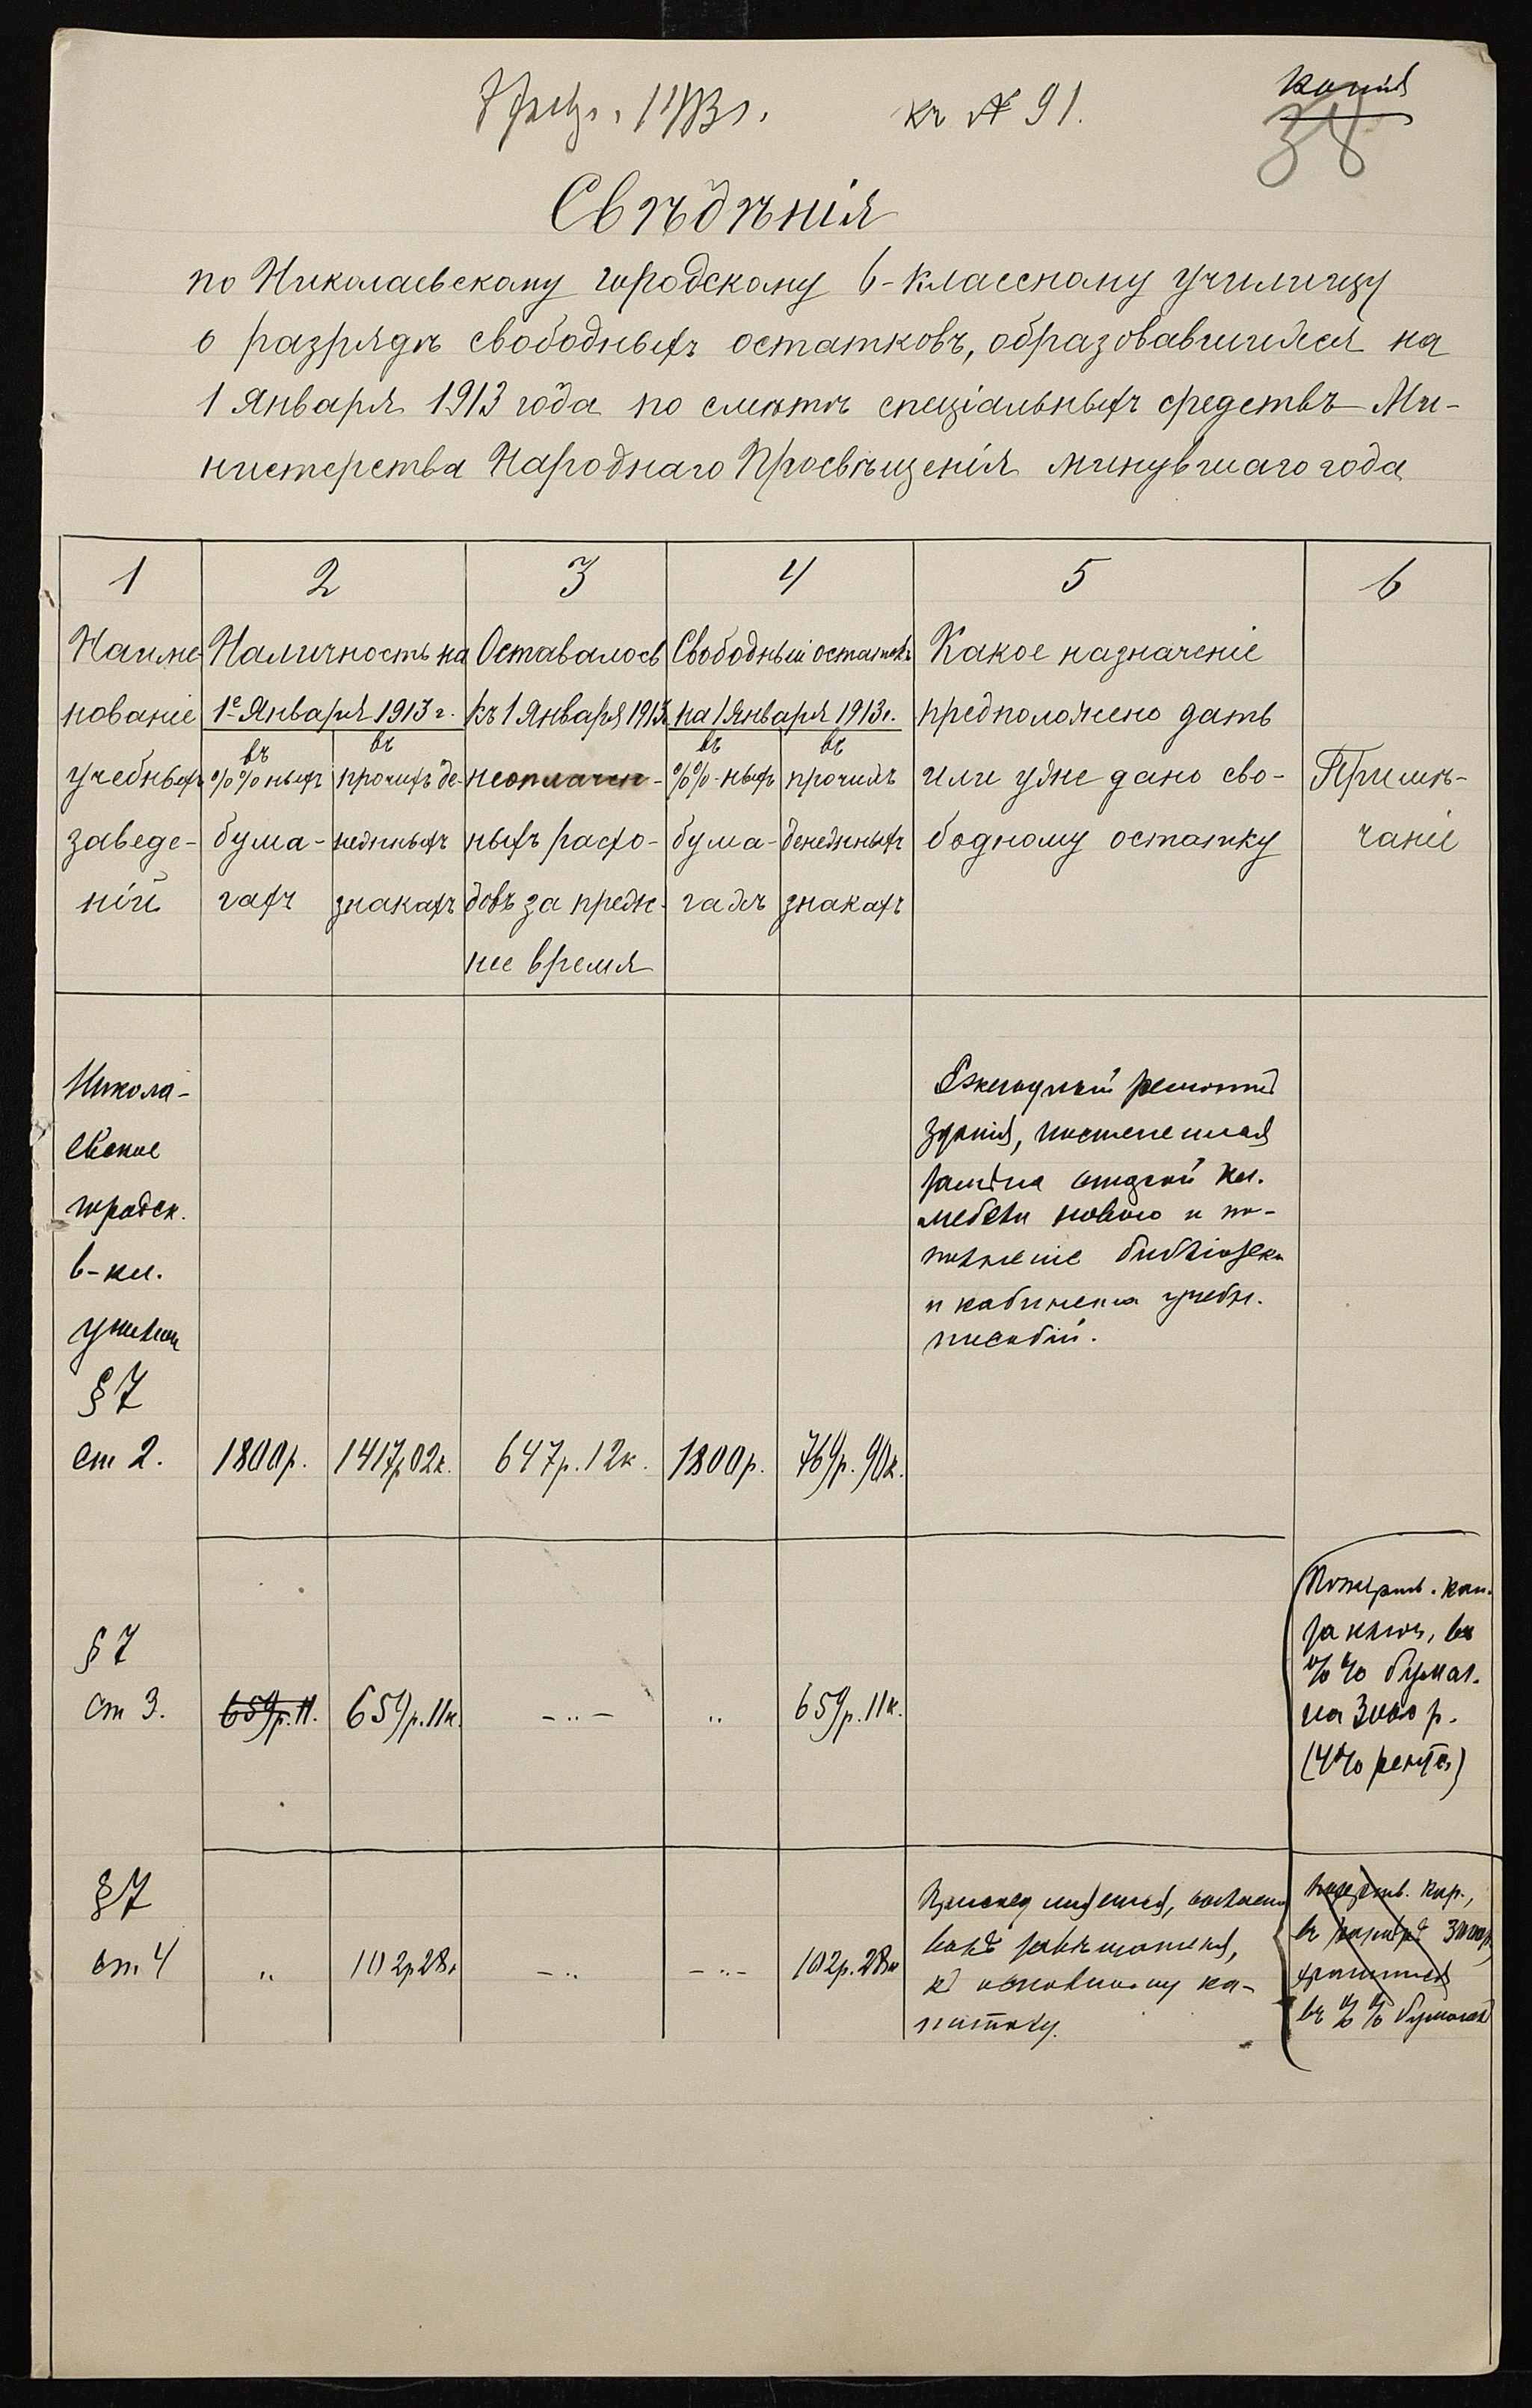 1913 г. къ № 91.
Копія
38
Свѣдѣнія
по Николаевскому городскому 6-классному училищу
о разрядѣ свободныхъ остатковъ, образовавшихся на
1 Января 1913 года по смѣтѣ спеціальныхъ средствъ Ми-
нистерства Народнаго Просвѣщенія минувшаго года
1 2 3 4 5 6
Наиме-
нованіе
учебныхъ
заведе-
ній
Наличность на
1е Января 1913 г.
въ
%%ныхъ
бума-
гахъ
въ
прочихъ де-
нежныхъ
знакахъ
Оставалось
къ 1 Января 1913
неоплачен-
ныхъ расхо-
довъ за преж-
нее время
Свободный остатокъ
на 1 Января 1913 г.
въ
%%-ныхъ
бума-
гахъ
въ
прочихъ
денежныхъ
знакахъ
Какое назначеніе
предположено дать
или уже дано сво-
бодному остатку
Примѣ-
чаніе
Никола-
евское
городск.
6-кл.
училищ
§ 7
ст 2.
1800р. 1417р02к. 647р.12к. 1800р. 769р.90к.
Ежегодный ремонтъ
зданія, постепенная
замѣна старой кл.
мебели новою и по-
полненіе библіотеки
и кабинета учебн.
пособій.
§ 7
ст 3.
659р.11. 659р.11к. -..- .. 659р.11к.
Пожертв. кап.
заключ. въ
%% бумаг.
на 3000 р.
(4% рента)
§ 7
ст. 4
.. 102р28к -.. -..- 102р.28к
Присоединяется, согласно
волѣ завѣщателя,
къ основному ка-
питалу.
пожертв. кап.,
въ размѣрѣ 3000р,
хранится
въ %% бумагахъ